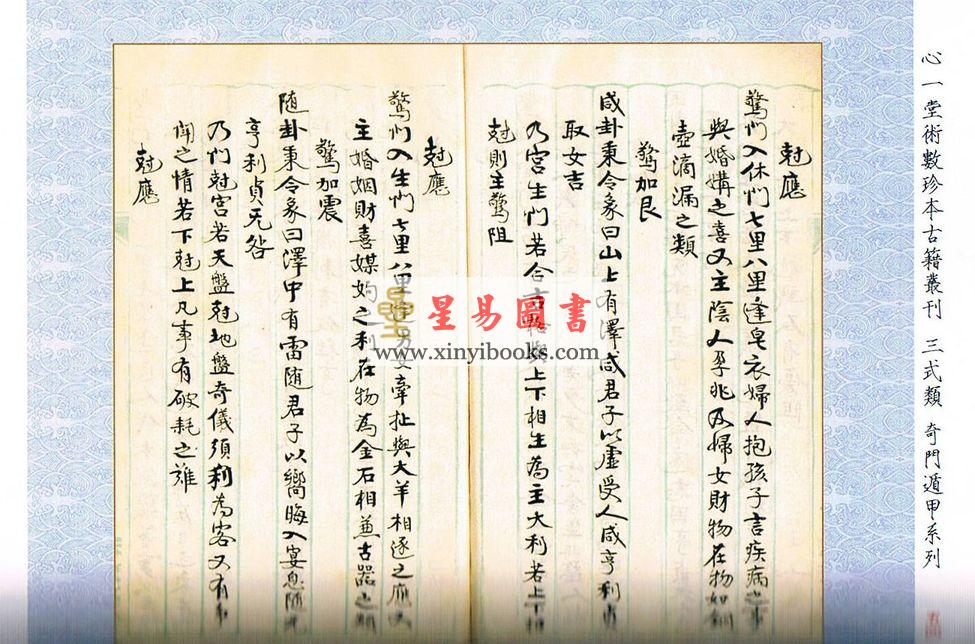 心一堂術數珍本古籍叢刊 三式類 奇門遁甲系列
尅應
驚门入休门七里八里逢皂衣婦人抱孩子言疾病之事
與婚媾之喜又主陰人孕兆及婦女財物在物如銅
壺滴漏之類
驚加艮
咸卦秉令象曰山上有澤咸君子以虛受人咸亨利貞
取女吉
乃宮生门若合吉格與上下相生為主大利若上下相
尅則主驚阻
尅應
驚门入生门七里八里逢男女牽扯與犬羊相逐之應又
主婚姻財喜媒妁之利在物為金石相兼古器之類
驚加震
随卦秉令象曰澤中有雷随君子以嚮晦入宴息随元
亨利貞无咎
乃门尅宮若天盤尅地盤奇儀須利為客又有事
閗之情若下尅上凡事有破耗之雖
尅應
星易圖書
www.xinyibooks.com